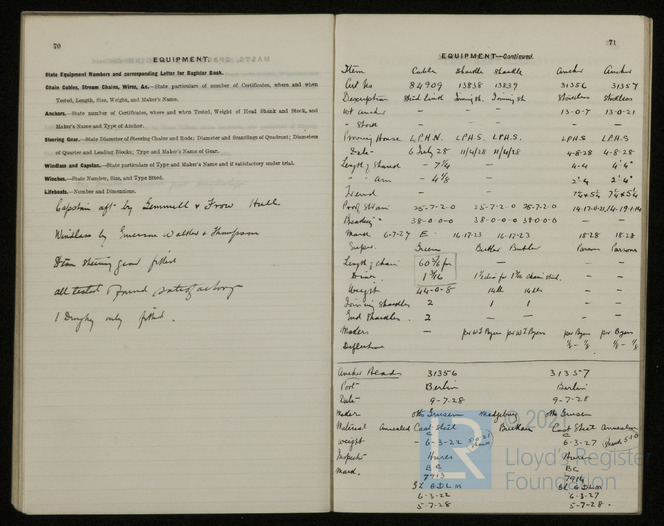 70
EQUIPMENT.
State Equipment Numbers and corresponding Letter for Register Book.
Chain Cables, Stream Chains, Wires, &c.—State particulars of number of Certificates, where and when
Tested, Length, Size, Weight, and Maker's Name.
Anchors.—State number of Certificates, where and when Tested, Weight of Head Shank and Stock, and
Maker's Name and Type of Anchor.
Steering Gear.—State Diameter of Steering Chains and Rods; Diameter and Boardings of Quadrant; Diameters
of Quarter and Leading Blocks; Type and Maker's Name of Gear.
Windlass and Capstan.—State particulars of Type and Maker's Name and if satisfactory under trial.
Winches.—State Number, Size, and Type fitted.
Lifeboats.—Number and Dimensions.
Capstan aft by Gemmell & Frow Hull
Windlass by Emerson Walker & Thompson
Steam steering gear fitted
all tested & found satisfactory
1 Dinghy only fitted.
71
EQUIPMENT—Continued.
Item Cable Shackle Shackle Anchor Anchor
Cert Nos 84909 13838 13839 31356 31357
Description Stud Link Joining Sh. Joining Sh Stockless Stockless
Wt Anchor — — — 13-0-7 13-0-21
" Stock — — — — —
Proving House L.P.H.N. L.P.H.S. L.P.H.S. L.P.H.S L.P.H.S
Date 6 July 28 11/6/28 11/6/28 4-8-28 4-8-28
Length of Shank
" " arm
Proof Strain 25-7-2-0 25-7-2-0 25-7-2-0
Breaking " 38-0-0-0 38-0-0-0 38-0-0-0
Mark 6-7-27 E 16-17-23 16-17-23 18-28 18.28
Super. Green Butler Butler Parsons Parsons
Length of chain — — — —
Diam.
Weight 44-0-8
Joining Shackles 2 1 1 — —
End Shackles 2 — — — —
Makers — per W L Byers per W L Byers per Byers per Byers
Deflection
Anchor Heads 31356 31357
Port Berlin Berlin
Date 9-7-28 9-7-28
Maker Otto Gruson Magdeburg Otto Gruson
Material Annealed Cast Steel Buckau Cast Steel Annealed
Weight 6-3-22 6-3-27
Inspector
Mark BC BC
7913 7914
6-3-22 6-3-27
5-7-28 5-7-28.
© 2021
Lloyd's Register
Foundation